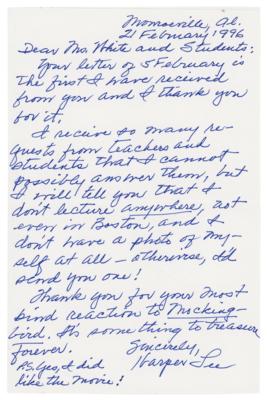 Monroeville, Al.
21 February 1996
Dear Ms. White and Students:
Your letter of 5 February is
the first I have recieved
from you and I thank you
for it.
I recive so many re-
quests from teachers and
students that I cannot
possibly answer them, but
I will tell you that I
don't lecture anywhere, not
even in Boston, and I
don't have a photo of my-
self at all — otherwise, I'd
send you one!
Thank you for your most
kind reaction to Mocking-
bird. It's something to treasure
forever.
Sincerely,
Harper Lee
P.S. Yes, I did
like the movie!